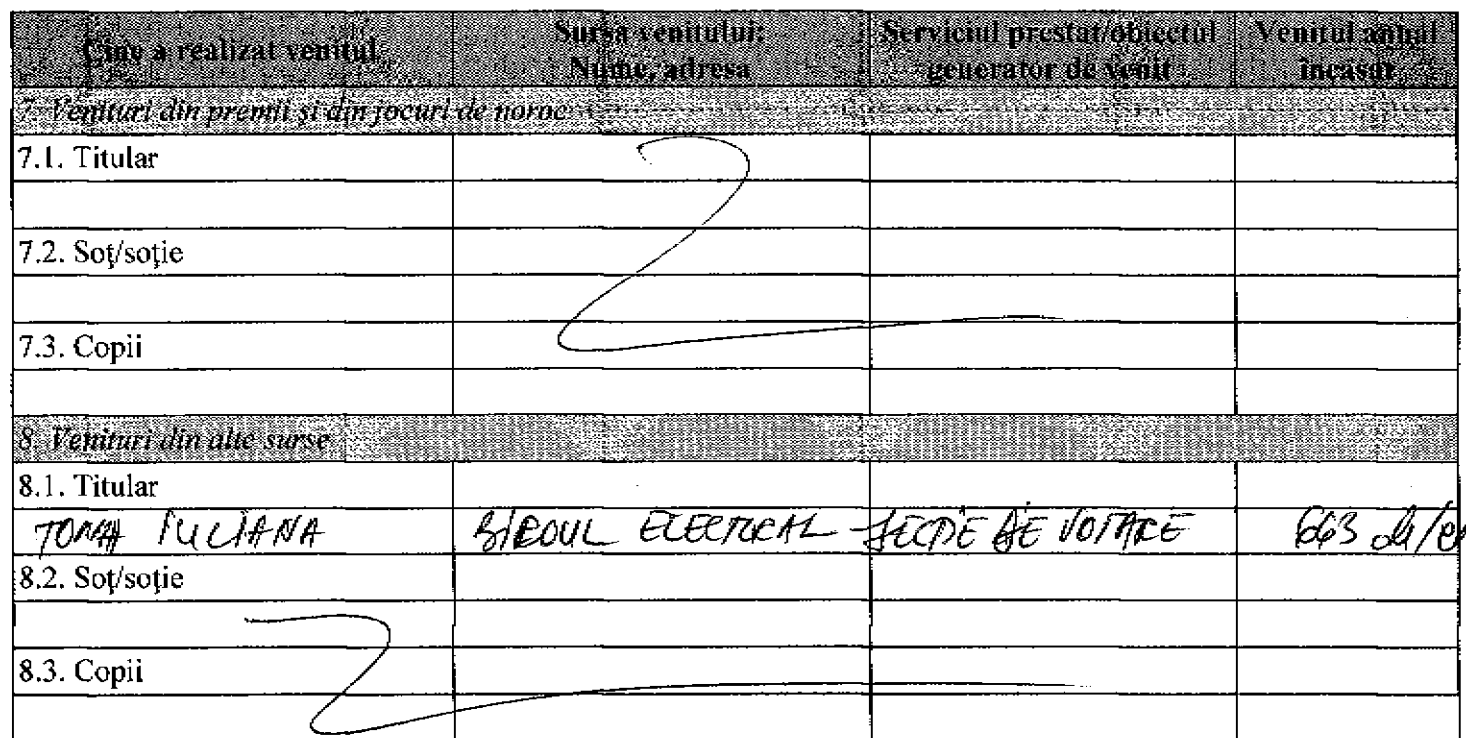 Cine a realizat venitul Sursa venitului: Serviciul prestat/obiectul Venitul anual
Nume, adresa generator de venit încasat
7. Venituri din premii şi din jocuri de noroc
7.1. Titular
7.2. Soţ/soţie
7.3. Copii
8. Venituri din alte surse
8.1. Titular
TOMA IULIANA BIROUL ELECTORAL SECŢIE DE VOTARE 663
8.2. Soţ/soţie
8.3. Copii